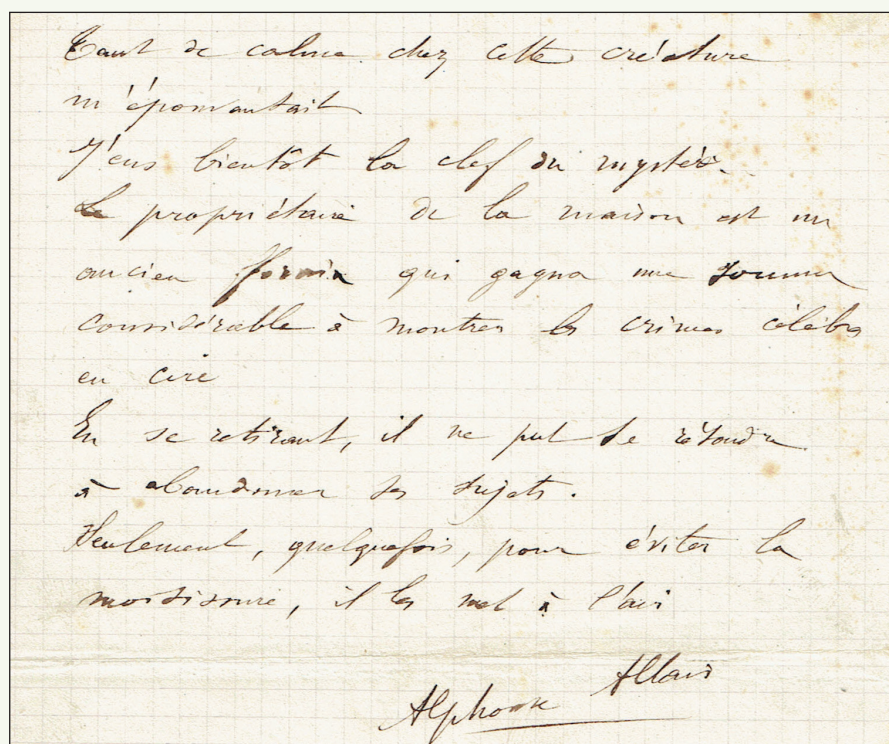 Tant de calme chez cette créature
m'épouvantait
J'eus bientôt la clef du mystère.
Le propriétaire de la maison est un
ancien forain qui gagna une somme
considérable à montrer les crimes célèbres
en cire
En se retirant, il ne put se résoudre
à abandonner ses sujets.
Seulement, quelquefois, pour éviter la
moisissure, il les met à l'air
Alphonse Allais